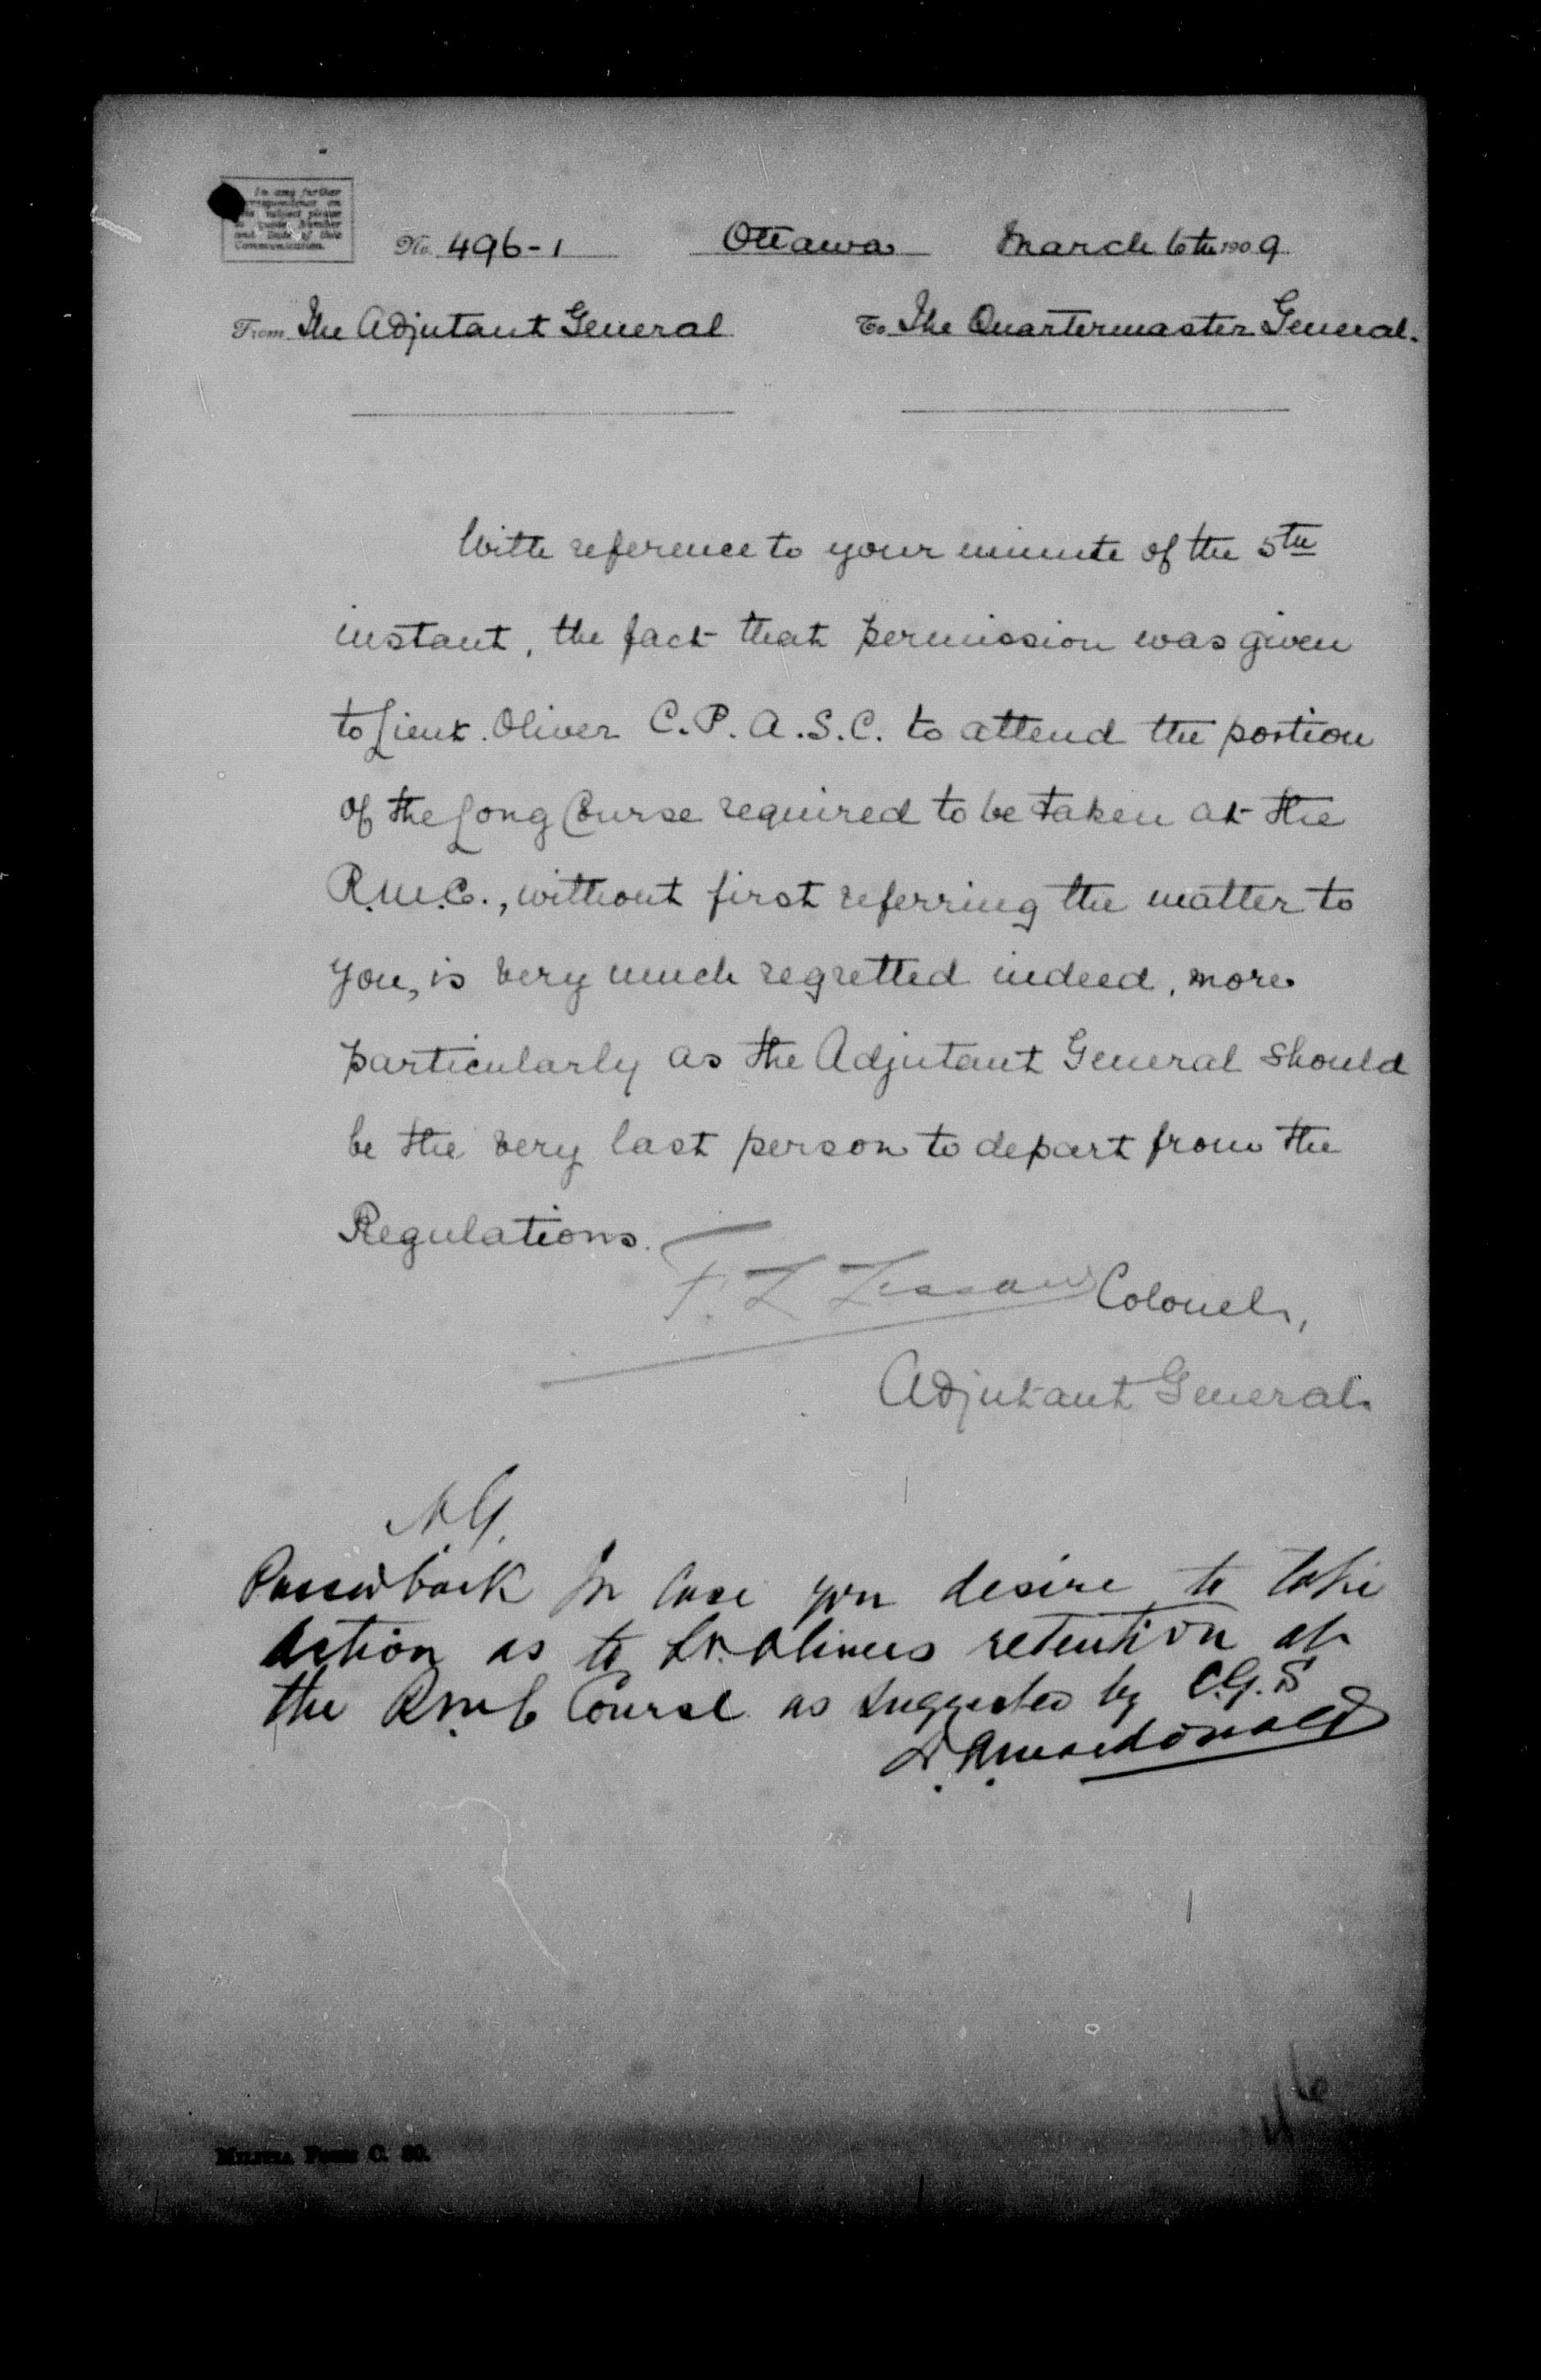 In any further
correspondence on
this subject please
to quote Number
and Date of this
Communication.
No. 496-1 Ottawa March 6th 1909
From The Adjutant General To The Quartermaster General.
With reference to your minute of the 5th
instant, the fact that permission was given
to Lieut. Oliver C.P.A.S.C. to attend the portion
of the Long Course required to be taken at the
R.M.C., without first referring the matter to
you, is very much regretted indeed, more
particularly as the Adjutant General should
be the very last person to depart from the
Regulations.
F. L. Lessard Colonel,
Adjutant General.
A.G.
Passed back in case you desire to take
action as to Lt. Olivers retention at
the RMC Course as suggested by C.G.S
D.A. Macdonald
46
MILITIA FORM C. 80.